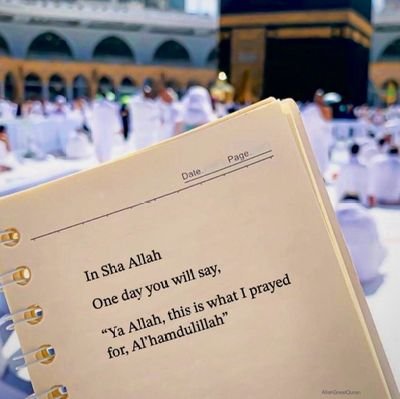 Date. Page.
In Sha Allah
One day you will say,
“Ya Allah, this is what I prayed
for, Al'hamdulillah”
AllahGreatQuran